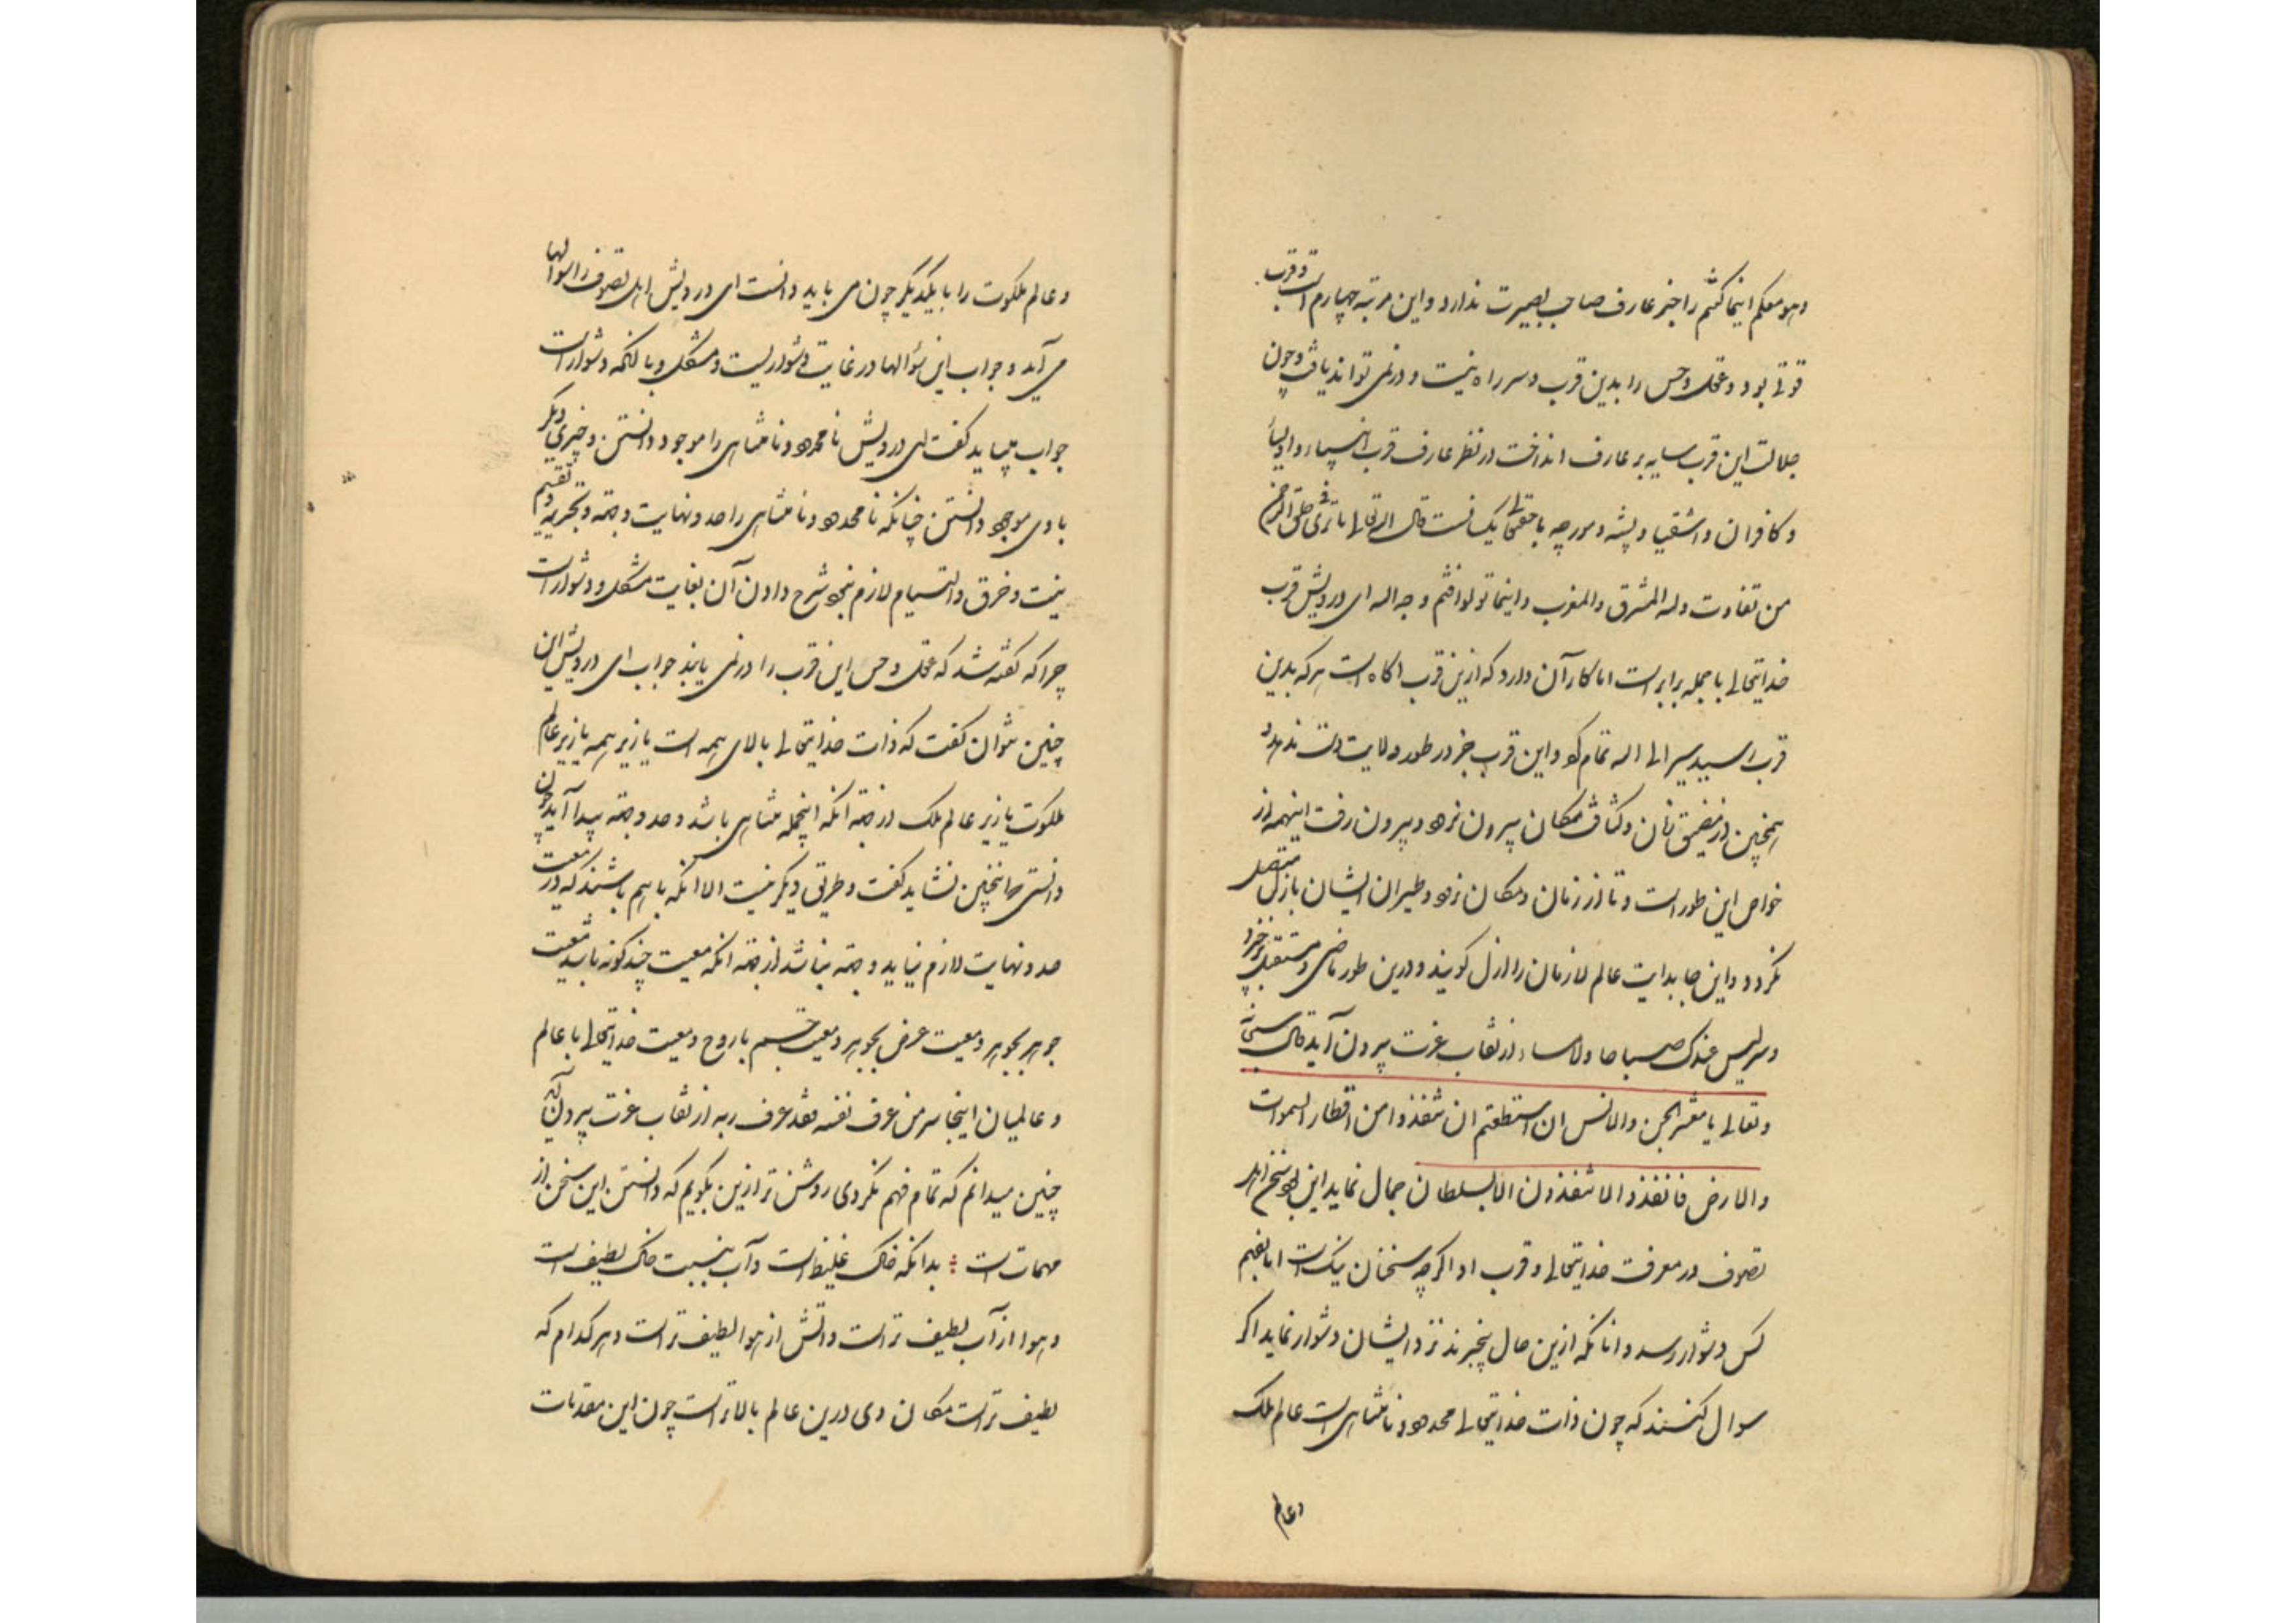 وهو معکم اینما کنتم را جز عارف صاحب بصیرت ندارد و این مرتبه چهارم است و قرب
قوتی بود و عقل و حس را بدین قرب و سر راه نیست و در نمی تواند یافت و چون
جلالت این قرب سایه بر عارف انداخت در نظر عارف قرب انبیاء و اولیاء
و کافران و اشقیا و پشه و مورچه با حقتعالی یکسانست قال الله تعالی ما تری فی خلق الرحمن
من تفاوت و له المشرق و المغرب و اینما تولوا فثم وجه الله ای درویش قرب
خدایتعالی با جمله برابر است اما کار آن دارد که ازین قرب اکاه است هر که بدین
قرب رسید سیر الی الله تمام کرد و این قرب جز در طور ولایت دست ندهد و
همچنین از مضیق زمان و کثافت مکان بیرون نرود و بیرون رفت اینهمه از
خواص این طور است و تا از زمان و مکان نرود و طیران ایشان بازل متصل
نکردد و این جا بدایت عالم لازمان را ازل کویند و درین طور ماضی و مستقبل برخیزد
و سر لیس عندی صباحا ولا مساء از نقاب عزت بیرون آید قال سبحانه
و تعالی یا معشر الجن و الانس ان استطعتم ان تنفذوا من اقطار السموات
و الارض فانفذوا لا تنفذون الا بسلطان جمال نماید این بود سخن اهل
تصوف در معرفت خدایتعالی و قرب او اکرچه سخنان نیک است اما بفهم
کس دشوار رسد و آنانکه ازین حال بیخبرند نزد ایشان دشوار نماید اکر
سوال کنند که چون ذات خدایتعالی محدود و نامتناهی است عالم ملک
و عالم
و عالم ملکوت را با یکدیکر چون می باید دانست ای درویش اهل تصوف را سوالها
می آید و جواب این سؤالها در غایت دشواریست و مشکل و بالکمه دشوار است
جواب میباید کفت ای درویش نامحدود و نامتناهی را موجود دانستن و چیزی دیکر
با وی موجود دانستن چنانکه نامحدود و نامتناهی را حد و نهایت و جهة و تجزیه و تقسیم
نیست و خرق و التیام لازم نبود شرح دادن آن بغایت مشکل و دشوار است
چرا که کفته شد که عقل و حس این قرب را در نمی یابند جواب ای درویش این
چنین نتوان کفت که ذات خدایتعالی بالای همه است یا زیر همه یا زیر عالم
ملکوت یا زیر عالم ملک از جهة آنکه اینجمله متناهی باشد و حد و جهة پیدا آید چون
دانستی که اینچنین نشاید کفت و طریق دیکر نیست الا آنکه با هم باشند که در معیت
حد و نهایت لازم نیاید و جهة نباشد از جهة آنکه معیت چند کونه باشد معیت
جوهر بجوهر و معیت عرض بجوهر و معیت جسم با روح و معیت خدایتعالی با عالم
و عالمیان اینجا سر من عرف نفسه فقد عرف ربه از نقاب عزت بیرون آید
چنین میدانم که تمام فهم نکردی روشن تر ازین بکویم که دانستن این سخن از
مهمات است ؛ بدانکه خاک غلیظ است و آب بنسبت خاک لطیف است
و هوا از آب لطیف تر است و آتش از هوا لطیف تر است و هر کدام که
لطیف تر است مکان وی درین عالم بالاتر است چون این مقدمات